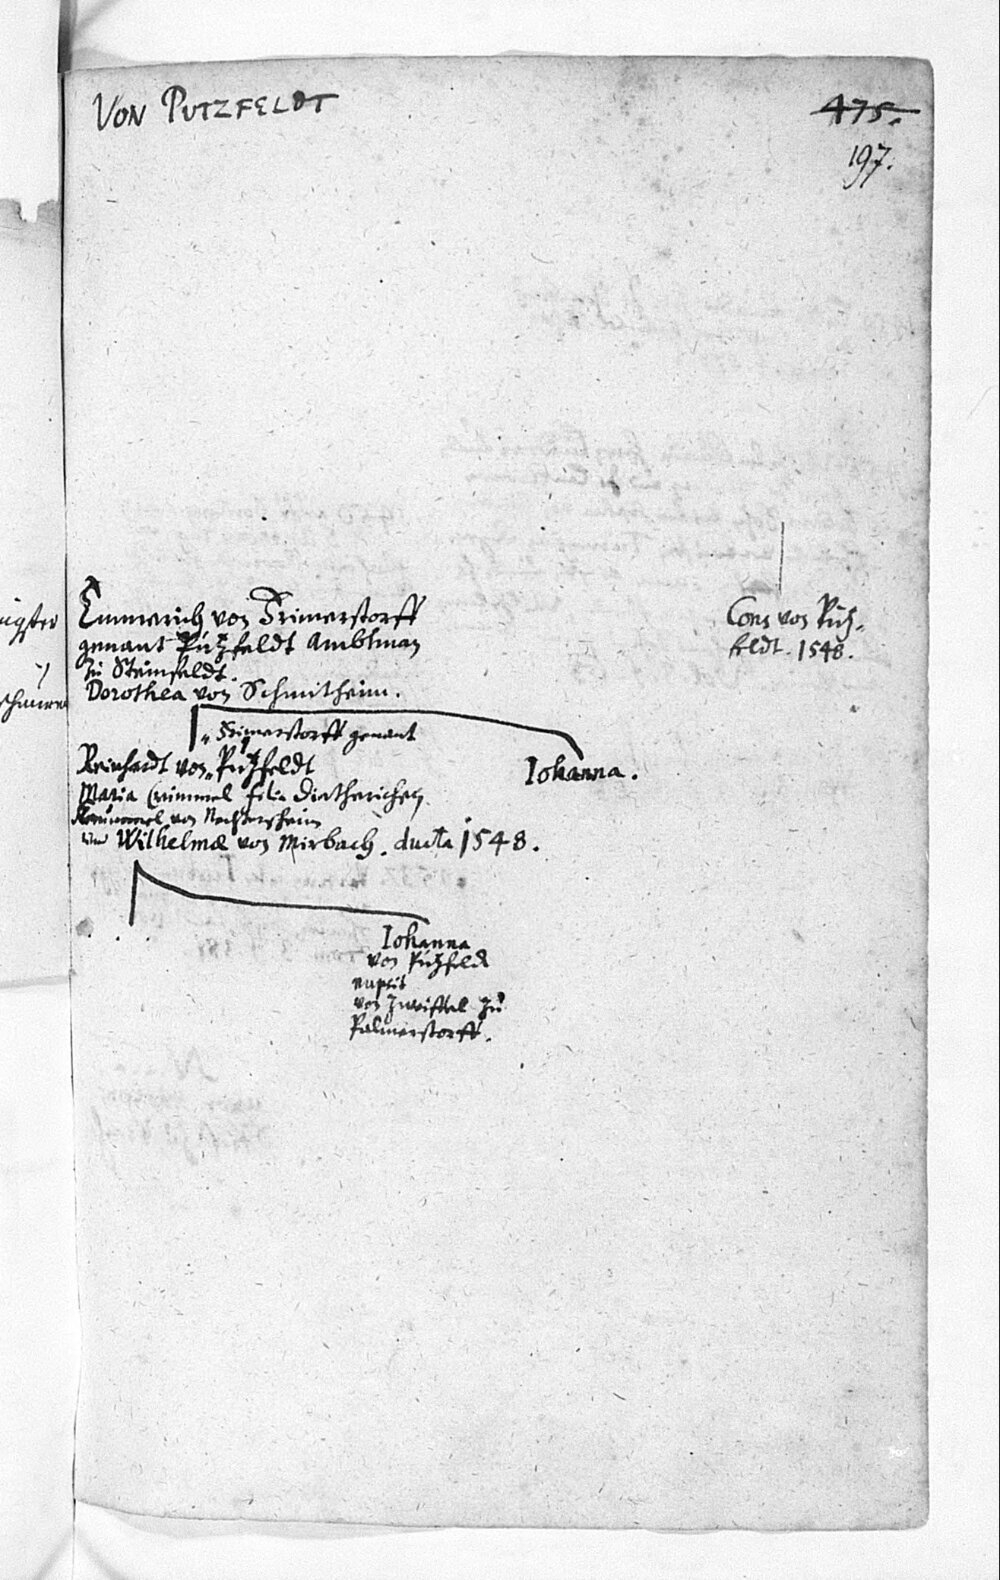 VON PUTZFELDT
475.
197.
Emmerich von Trimerstorff
genant Pützfeldt Ambtman
zu Steinfeldt.
Dorothea von Schmitheim.
Cons von Pütz-
feldt. 1548.
„ Trimerstorff genant
Reinhardt von „ Pützfeldt
Maria Crummel filia Dietherichen
Krummel von Nechtersheim
und Wilhelmæ von Mirbach. ducta 1548.
Iohanna.
Iohanna
von Pützfeldt
nupsit
von Zwiffel zu
Palmerstorff.